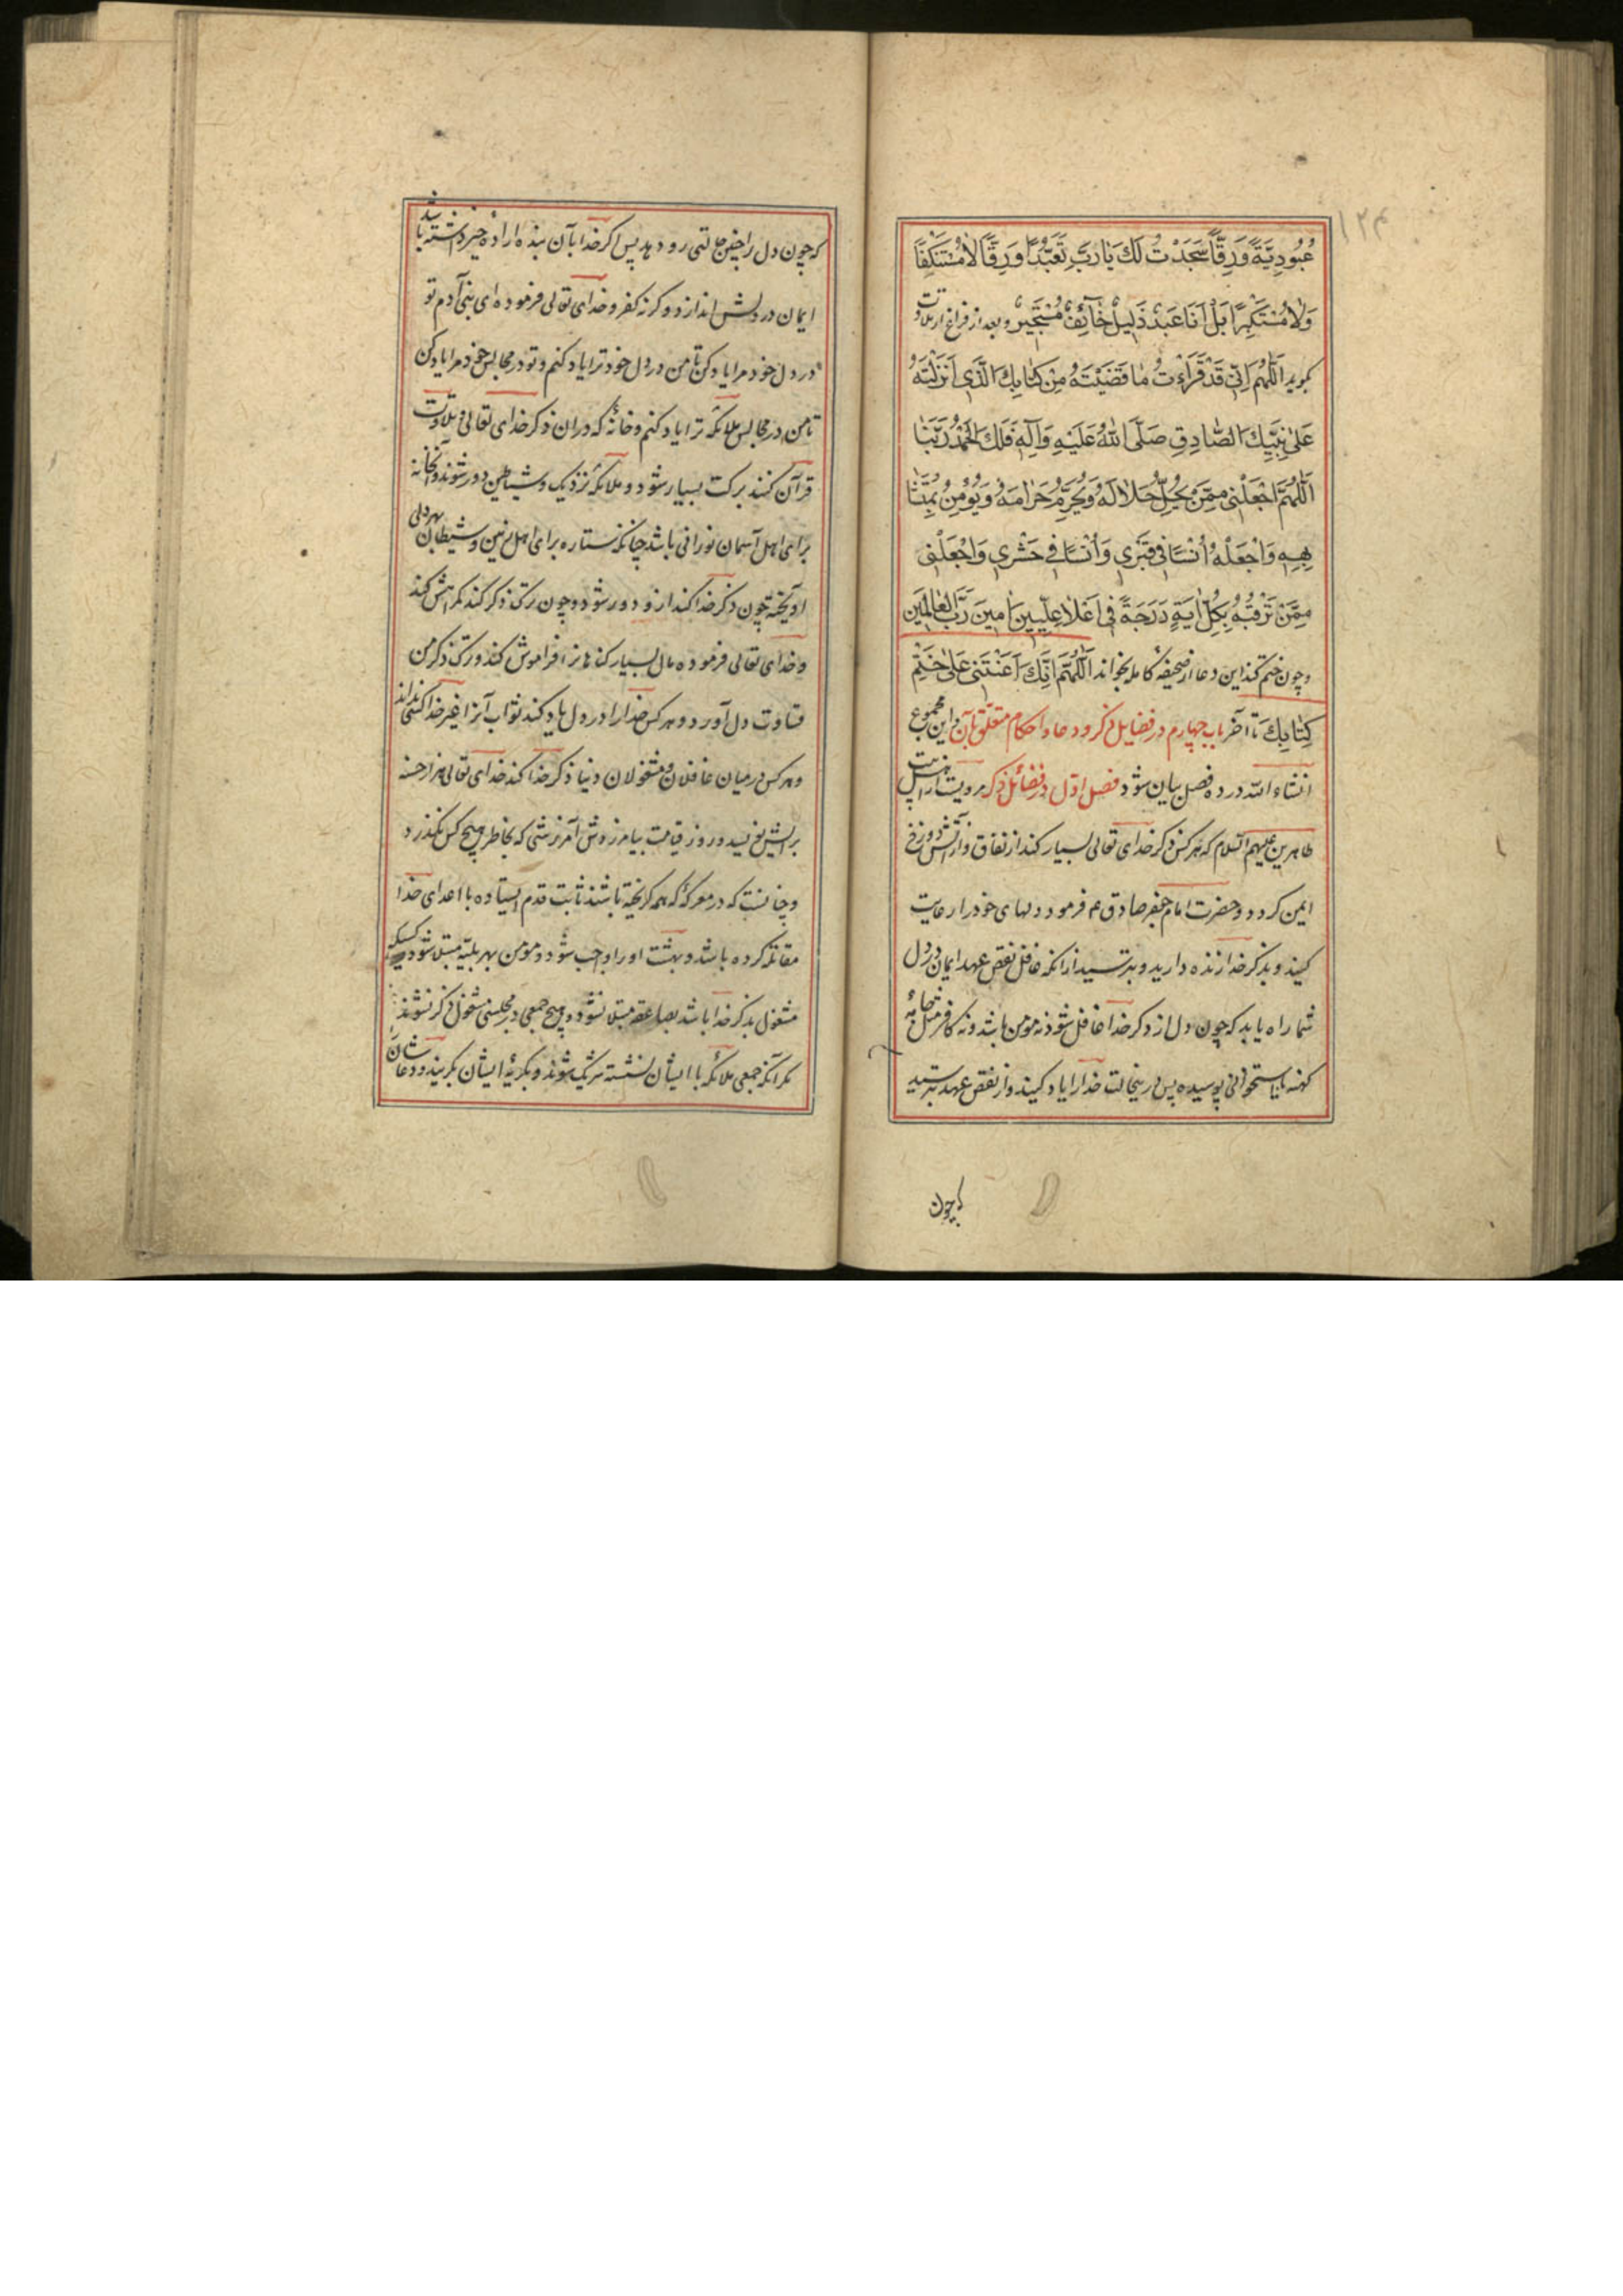 ۱۲۴
عُبُودِيَّةً وَرِقًّا سَجَدْتُ لَكَ يَا رَبِّ تَعَبُّدًا وَرِقًّا لَا مُسْتَنْكِفًا
وَلَا مُسْتَكْبِرًا بَلْ أَنَا عَبْدٌ ذَلِيلٌ خَائِفٌ مُسْتَجِيرٌ و بعد از فراغ از تلاوت
بگوید اَللّٰهُمَّ اِنِّي قَدْ قَرَأْتُ مَا قَضَيْتَهُ مِنْ كِتَابِكَ الَّذِي اَنْزَلْتَهُ
عَلٰى نَبِيِّكَ الصَّادِقِ صَلَّى اللهُ عَلَيْهِ وَآلِهِ فَلَكَ الْحَمْدُ رَبَّنَا
اَللّٰهُمَّ اجْعَلْنِي مِمَّنْ يُحِلُّ حَلَالَهُ وَيُحَرِّمُ حَرَامَهُ وَيُؤْمِنُ بِمُتَشَا
بِهِهِ وَاجْعَلْهُ أُنْسًا فِي قَبْرِي وَأُنْسًا فِي حَشْرِي وَاجْعَلْنِي
مِمَّنْ تَرْقِيهِ بِكُلِّ اٰيَةٍ دَرَجَةً فِي اَعْلَا عِلِّيِّينَ اٰمِينَ رَبَّ الْعَالَمِينَ
و چون ختم کند این دعا از صحیفه کامله بخواند اَللّٰهُمَّ اِنَّكَ اَعَنْتَنِي عَلٰى خَتْمِ
كِتَابِكَ تا آخر باب چهارم در فضایل ذکر و دعا و احکام متعلق بآن و این مجموع
انشاء الله در ده فصل بیان شود فصل اول در فضائل ذکر مرویست از اهل بیت
طاهرین علیهم السلام که هر کس ذکر خدای تعالی بسیار کند از نفاق و از آتش دوزخ
ایمن گردد و حضرت امام جعفر صادق ع م فرمود دلهای خود را رعایت
کنید و بذکر خدا زنده دارید و بترسید از آنکه غافل نقض عهد ایمان در دل
شما راه یابد که چون دل از ذکر خدا غافل شود نه مومن باشد و نه کافر مثل جامهٔ
کهنه یا استخوانی پوسیده پس در ینحالت خدا را یاد کنید و از نقض عهد بترسید
که چون
که چون دل را چنین حالتی رو دهد پس اگر خدا بآن بنده ارادهٔ خیر داشته باشد
ایمان در دلش اندازد و گرنه کفر و خدای تعالی فرموده ای بنی آدم تو
در دل خود مرا یاد کن تا من در دل خود ترا یاد کنم و تو در مجالس خود مرا یاد کن
تا من در مجالس ملائکه ترا یاد کنم و خانهٔ که در آن ذکر خدای تعالی و تلاوت
قرآن کنند برکت بسیار شود و ملائکه نزدیک و شیاطین دور شوند و آنخانه
برای اهل آسمان نورانی باشد چنانکه ستاره برای اهل زمین و شیطان بهر دلی
آویخته چون ذکر خدا کند از و دور شود و چون ترک ذکر کند گمراهش کند
و خدای تعالی فرموده مال بسیار گناهان را فراموش کند و ترک ذکر من
قساوت دل آورد و هر کس خدا را در دل یاد کند ثواب آنرا غیر خدا کسی نداند
و هر کس در میان غافلان و مشغولان دنیا ذکر خدا کند خدای تعالی هزار حسنه
برایش نویسد و روز قیامت بیامرزدش آمرزشی که بخاطر هیچ کس نگذرد
و چنانست که در معرکهٔ که همه گریخته باشند ثابت قدم ایستاده با اعدای خدا
مقاتله کرده باشد و بهشت او را واجب شود و مومن بهر بلیه مبتلا شود کسیکه
مشغول بذکر خدا باشد بصاعقه مبتلا نشود و هیچ جمعی در مجلسی مشغول ذکر نشوند
مگر آنکه جمعی ملائکه با ایشان نشسته شریک شوند و بگریهٔ ایشان بگریند و دعاشان